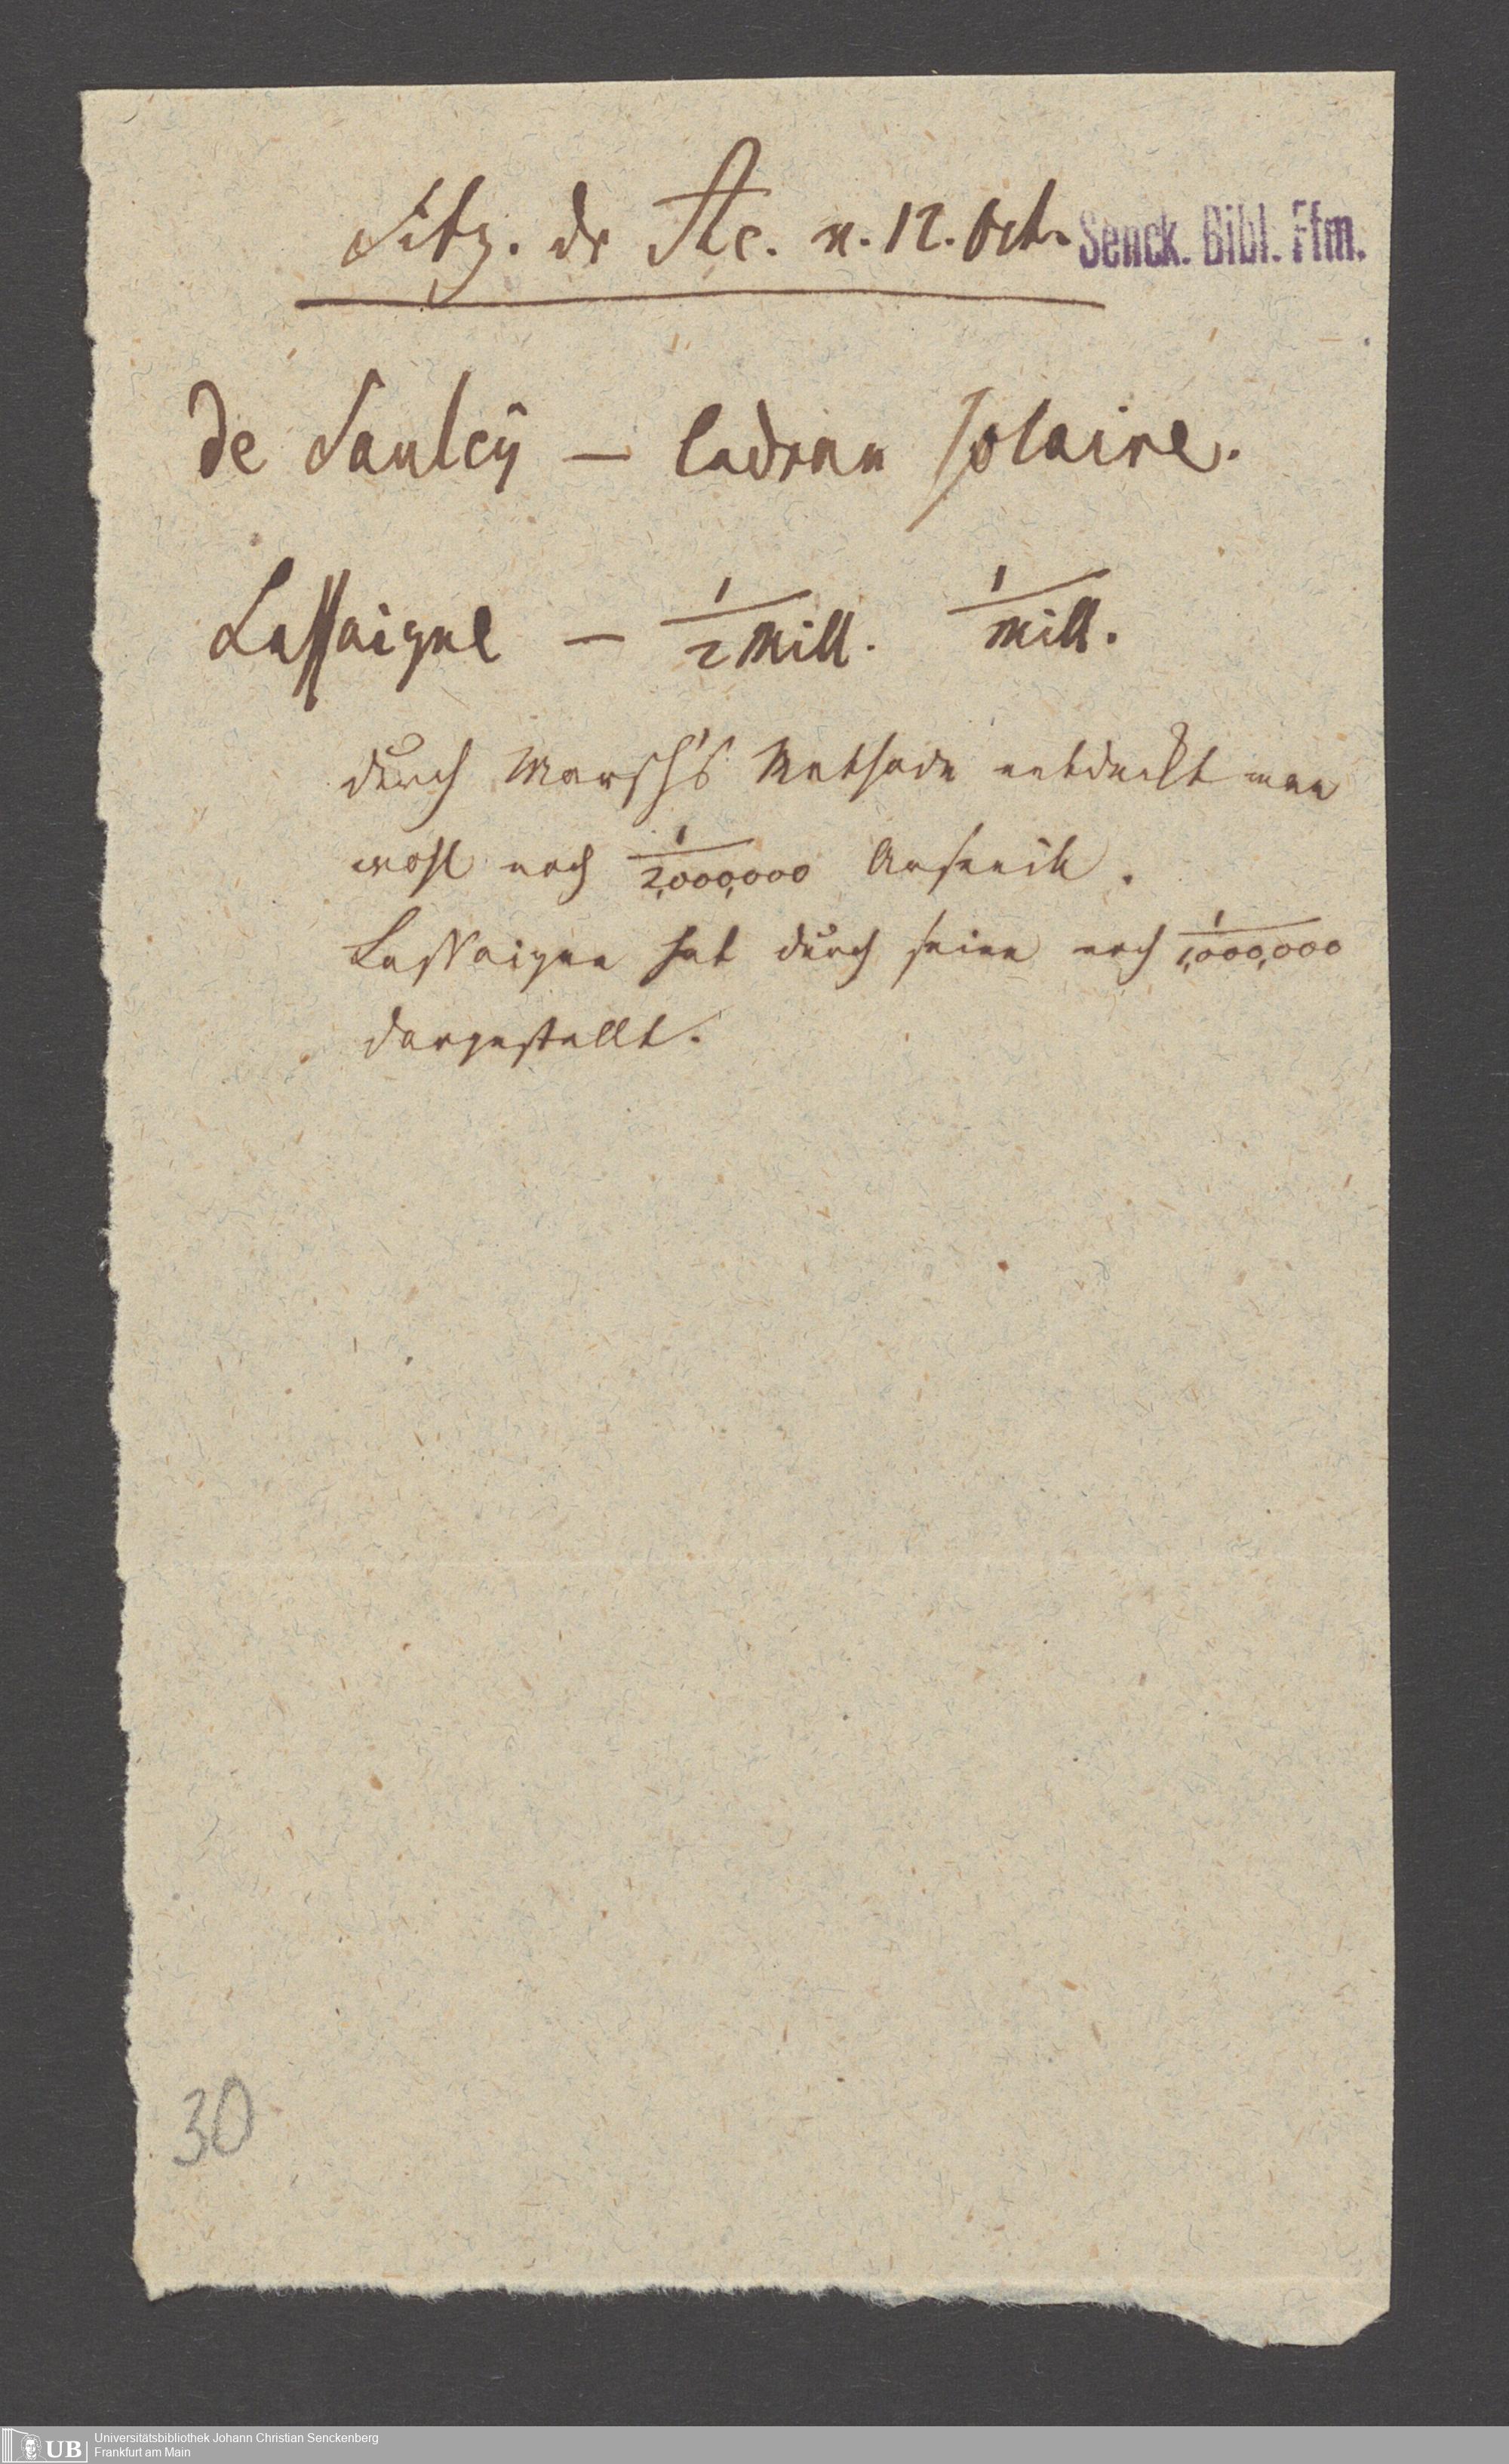 Sitz. dr Ac. v. 12. Oct. Senck. Bibl. Ffm.
de Saulcÿ — Cadran solaire.
Lassaigne — 1/2 Mill. 1/mill.
durch Marsh's Methode entdeckt man
wohl noch 1/2,000,000 Arsenik.
Lassaigne hat durch seine noch 1/1,000,000
dargestellt.
30
UB Universitätsbibliothek Johann Christian Senckenberg
Frankfurt am Main